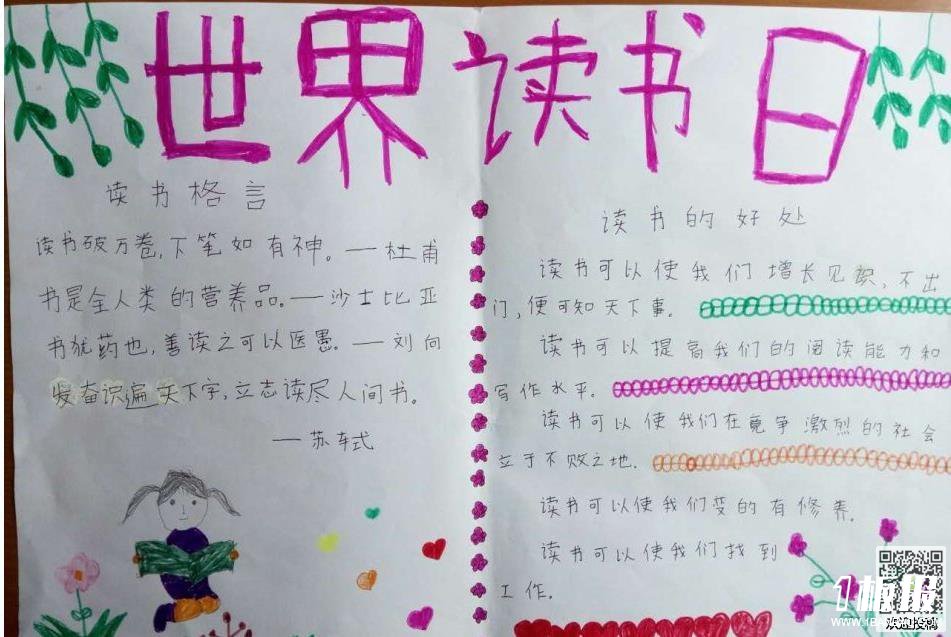 世界读书日
读书格言
读书破万卷,下笔如有神。——杜甫
书是全人类的营养品。——沙士比亚
书犹药也,善读之可以医愚。——刘向
发奋识遍天下字,立志读尽人间书。
——苏轼
读书的好处
读书可以使我们增长见识,不出
门,便可知天下事。
读书可以提高我们的阅读能力和
写作水平。
读书可以使我们在竟争激烈的社会
立于不败之地.
读书可以使我们变的有修养.
读书可以使我们找到
工作.